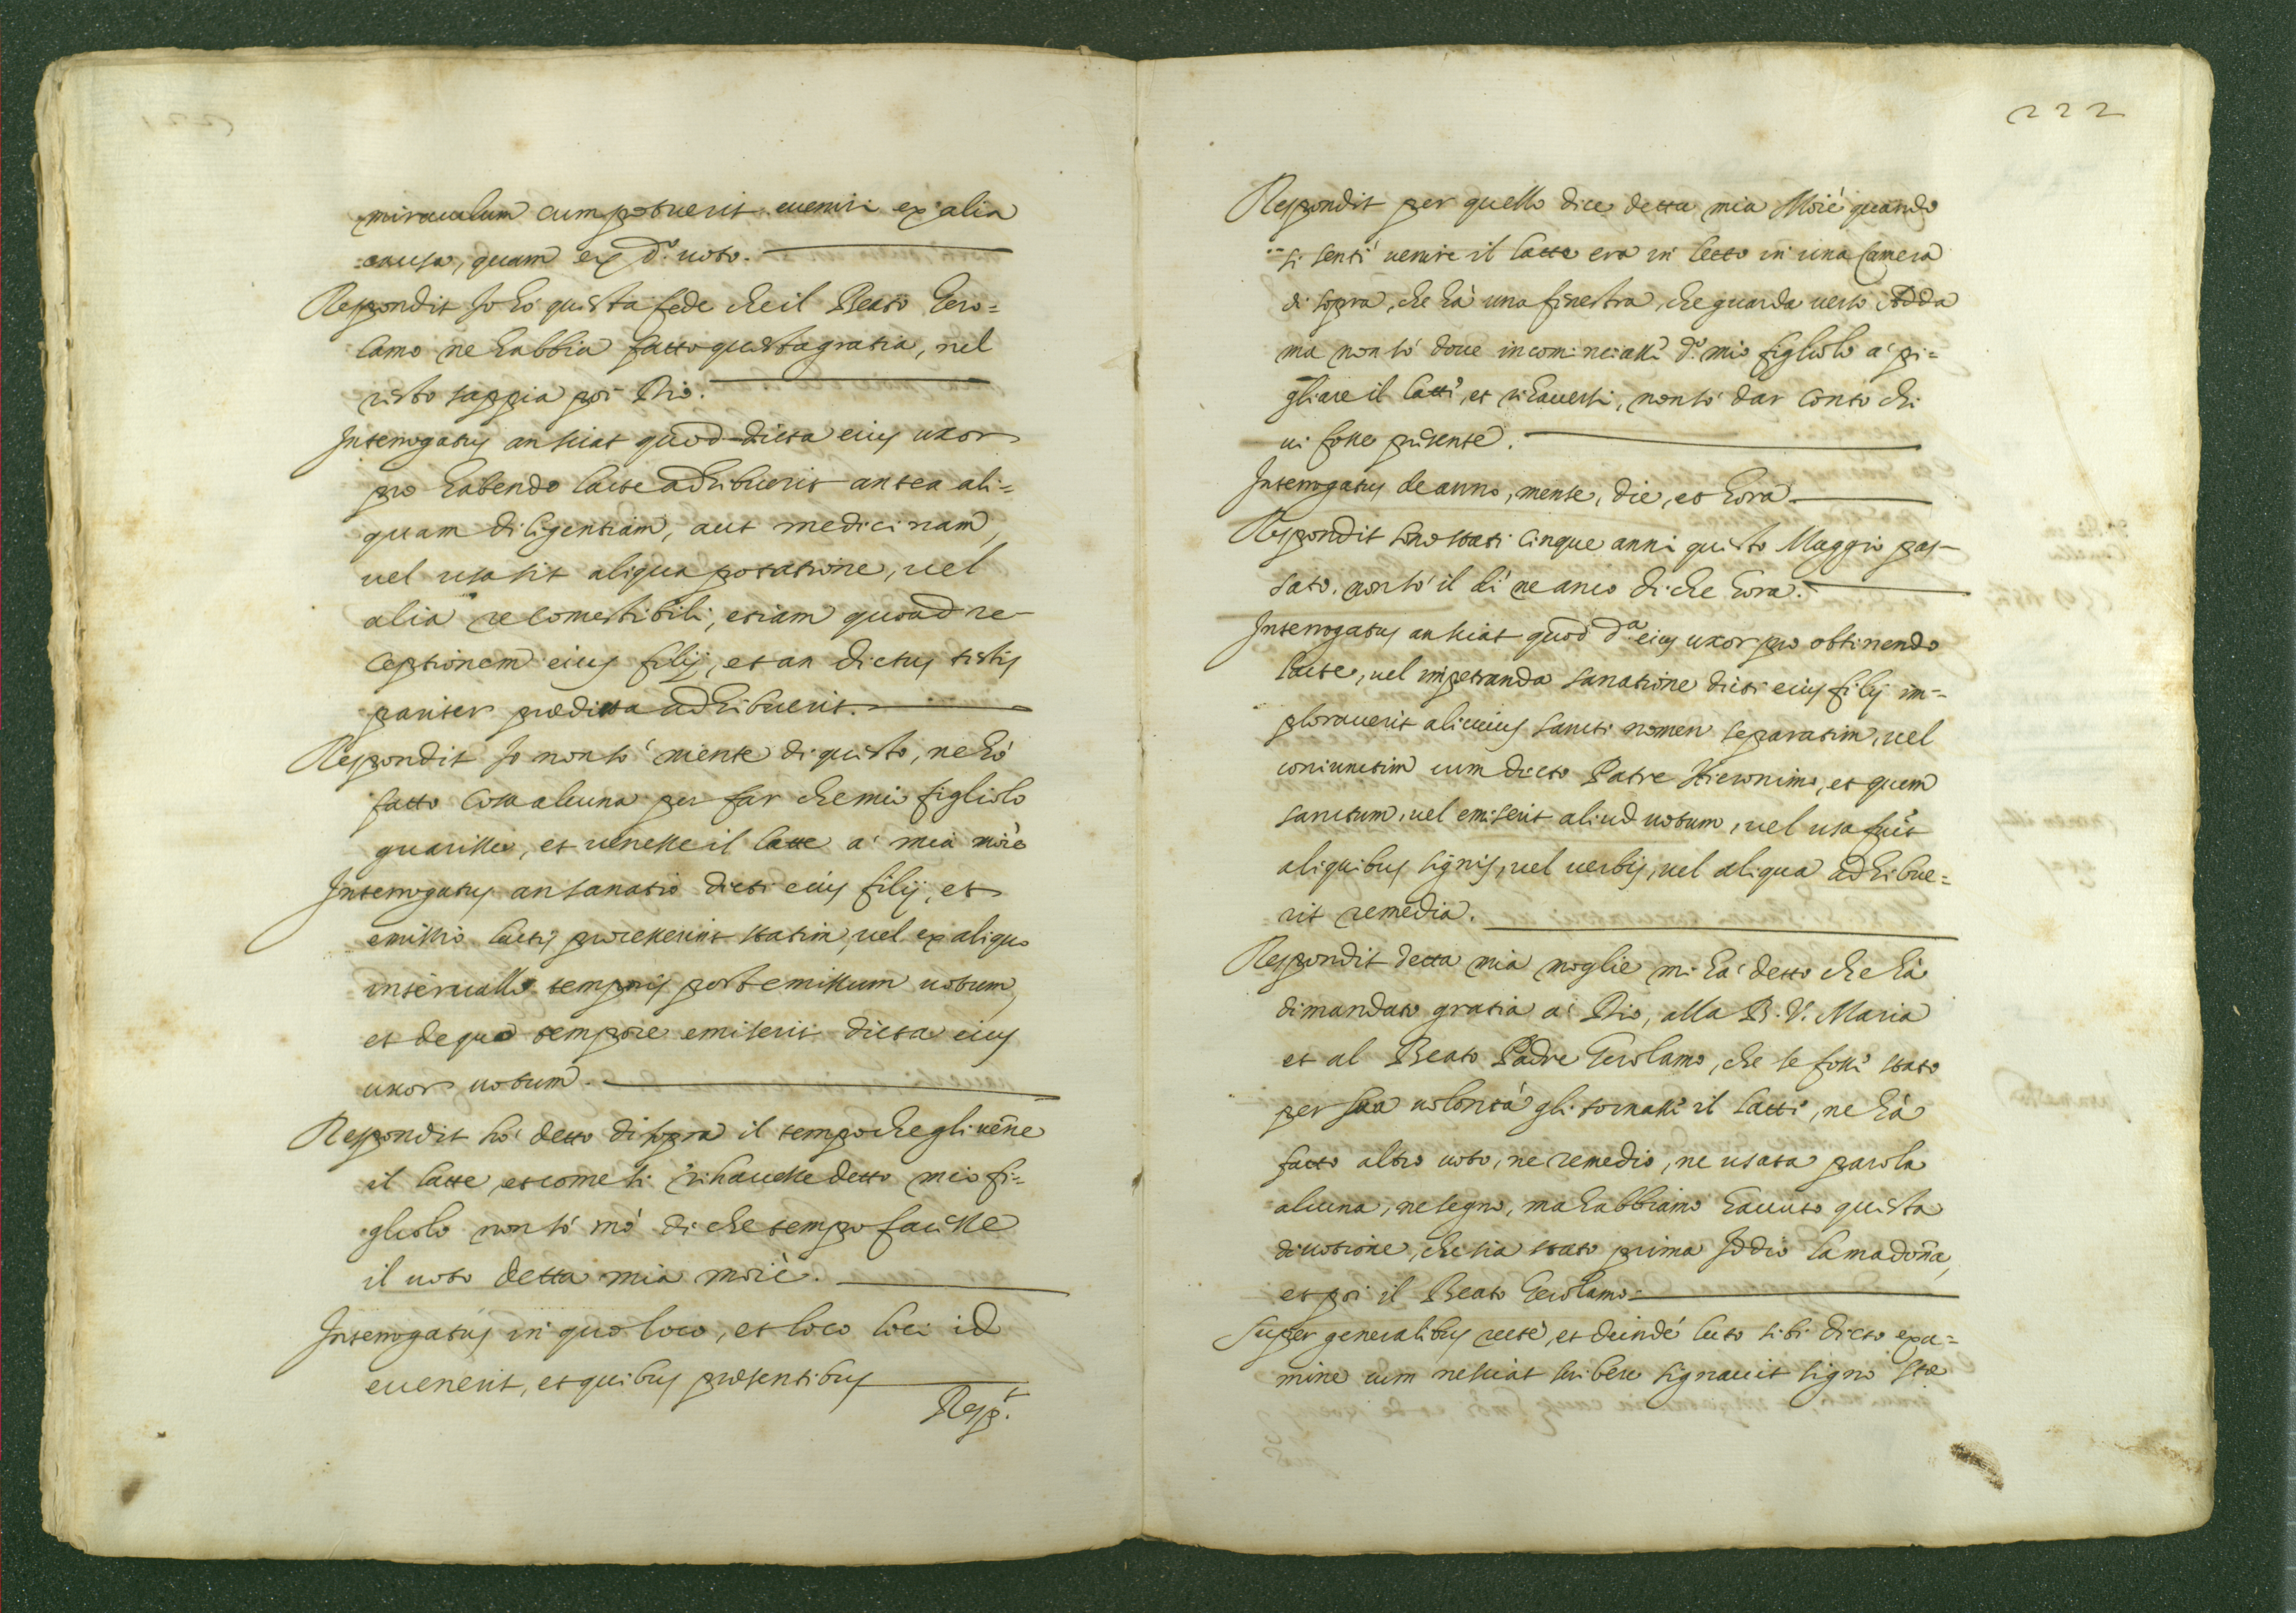 miraculum cum potuerit euenire ex alia
causa, quam ex d.º uoto.
Respondit Io hò questa fede che il Beato Gero=
lamo ne habbia fatto questa gratia, nel
resto sappia poi Dio.
Interrogatus an sciat quod dicta eius uxor
pro habendo lacte adhibuerit antea ali=
quam diligentiam, aut medicinam,
uel usa sit aliqua potatione, uel
alia re comestibili, etiam quoad re-
ceptionem eius filij, et an dictus testis
pariter prædicta adhibuerit.
Respondit Io non sò niente di questo, ne hò
fatto cosa alcuna per far che mio figliolo
guarisse, et uenesse il latte a' mia moiè
Interrogatus an sanatio dicti eius filij, et
emissio lactis processerint statim, uel ex aliquo
interuallo temporis post emissum uotum,
et de quo tempore emiserit dicta eius
uxor uotum.
Respondit hò detto di sopra il tempo che gli uēne
il latte, et come si rihauesse detto mio fi=
gliolo non sò mò di che tempo facesse
il uoto detta mia moiè.
Interrogatus in quo loco, et loco loci id
euenerit, et quibus præsentibus
Resp.ᵗ
222
Respondit per quello dice detta mia Moiè quando
si sentì uenire il latte era in letto in una Camera
di sopra, che hà una finestra, che guarda uerso Adda
ma non sò doue incominciasse d.º mio figliolo a' pi=
gliare il latte, et rihauersi, non sò dar conto chi
ui fosse presente.
Interrogatus de anno, mense, die, et hora
Respondit sono stati cinque anni questo Maggio pas-
sato, non sò il dì ne anco di che hora.
Interrogatus an sciat quod d.ª eius uxor pro obtinendo
lacte, uel impetranda sanatione dicti eius filij im=
plorauerit alicuius sancti nomen separatim, uel
coniunctim cum dicto Patre Hieronimo, et quem
sanctum, uel emiserit aliud uotum, uel usa fue̅it
aliquibus signis, uel uerbis, uel aliqua adhibue=
rit remedia.
Respondit detta mia moglie mi hà detto che hà
dimandato gratia a' Dio, alla B. V. Maria
et al Beato Padre Gerolamo, che se fosse stato
per sua uolontà gli tornasse il latte, ne hà
fatto altro uoto, ne remedio, ne usata parola
alcuna, ne segno, ma habbiamo hauuto questa
diuotione, che sia stato prima Iddio la madoña,
et poi il Beato Gerolamo.
Super generalibus recte, et deindè lecto sibi dicto exa=
mine cum nesciat scribere signauit signo Stæ